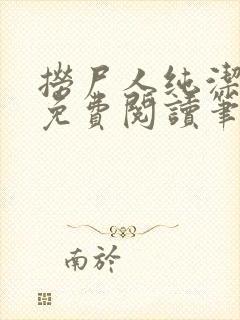 撈尸人純潔
免費閱讀筆
南於